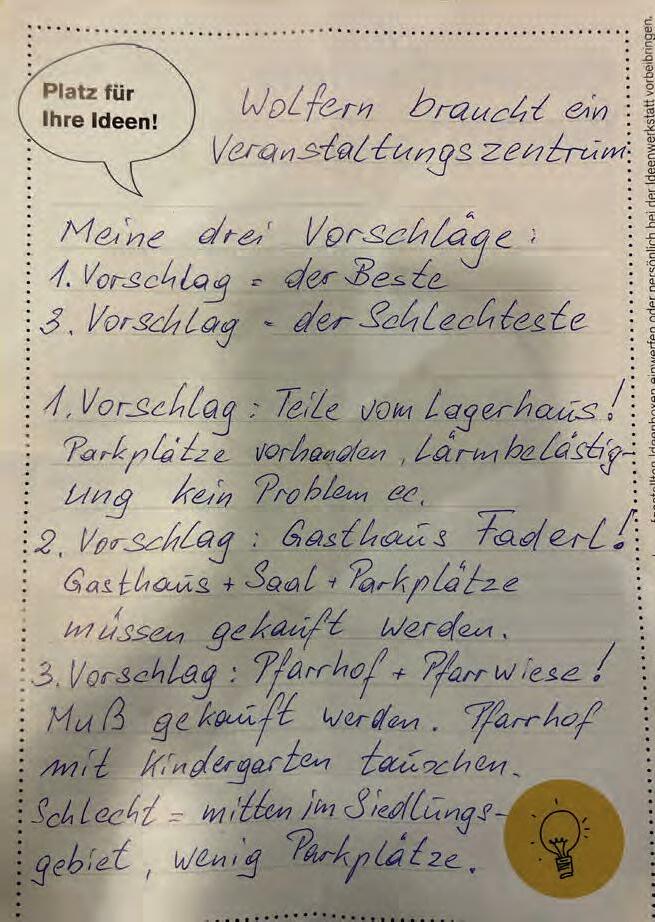 Platz für
Ihre Ideen!
Wolfern braucht ein
Veranstaltungszentrum
Meine drei Vorschläge:
1. Vorschlag = der Beste
3. Vorschlag = der Schlechteste
1. Vorschlag: Teile vom Lagerhaus!
Parkplätze vorhanden, Lärmbelästig-
ung kein Problem ec.
2. Vorschlag: Gasthaus Faderl!
Gasthaus + Saal + Parkplätze
müssen gekauft werden.
3. Vorschlag: Pfarrhof + Pfarrwiese!
Muß gekauft werden. Pfarrhof
mit Kindergarten tauschen.
Schlecht = mitten im Siedlungs-
gebiet, wenig Parkplätze.
Ideenboxen einwerfen oder persönlich bei der Ideenwerkstatt vorbeibringen.